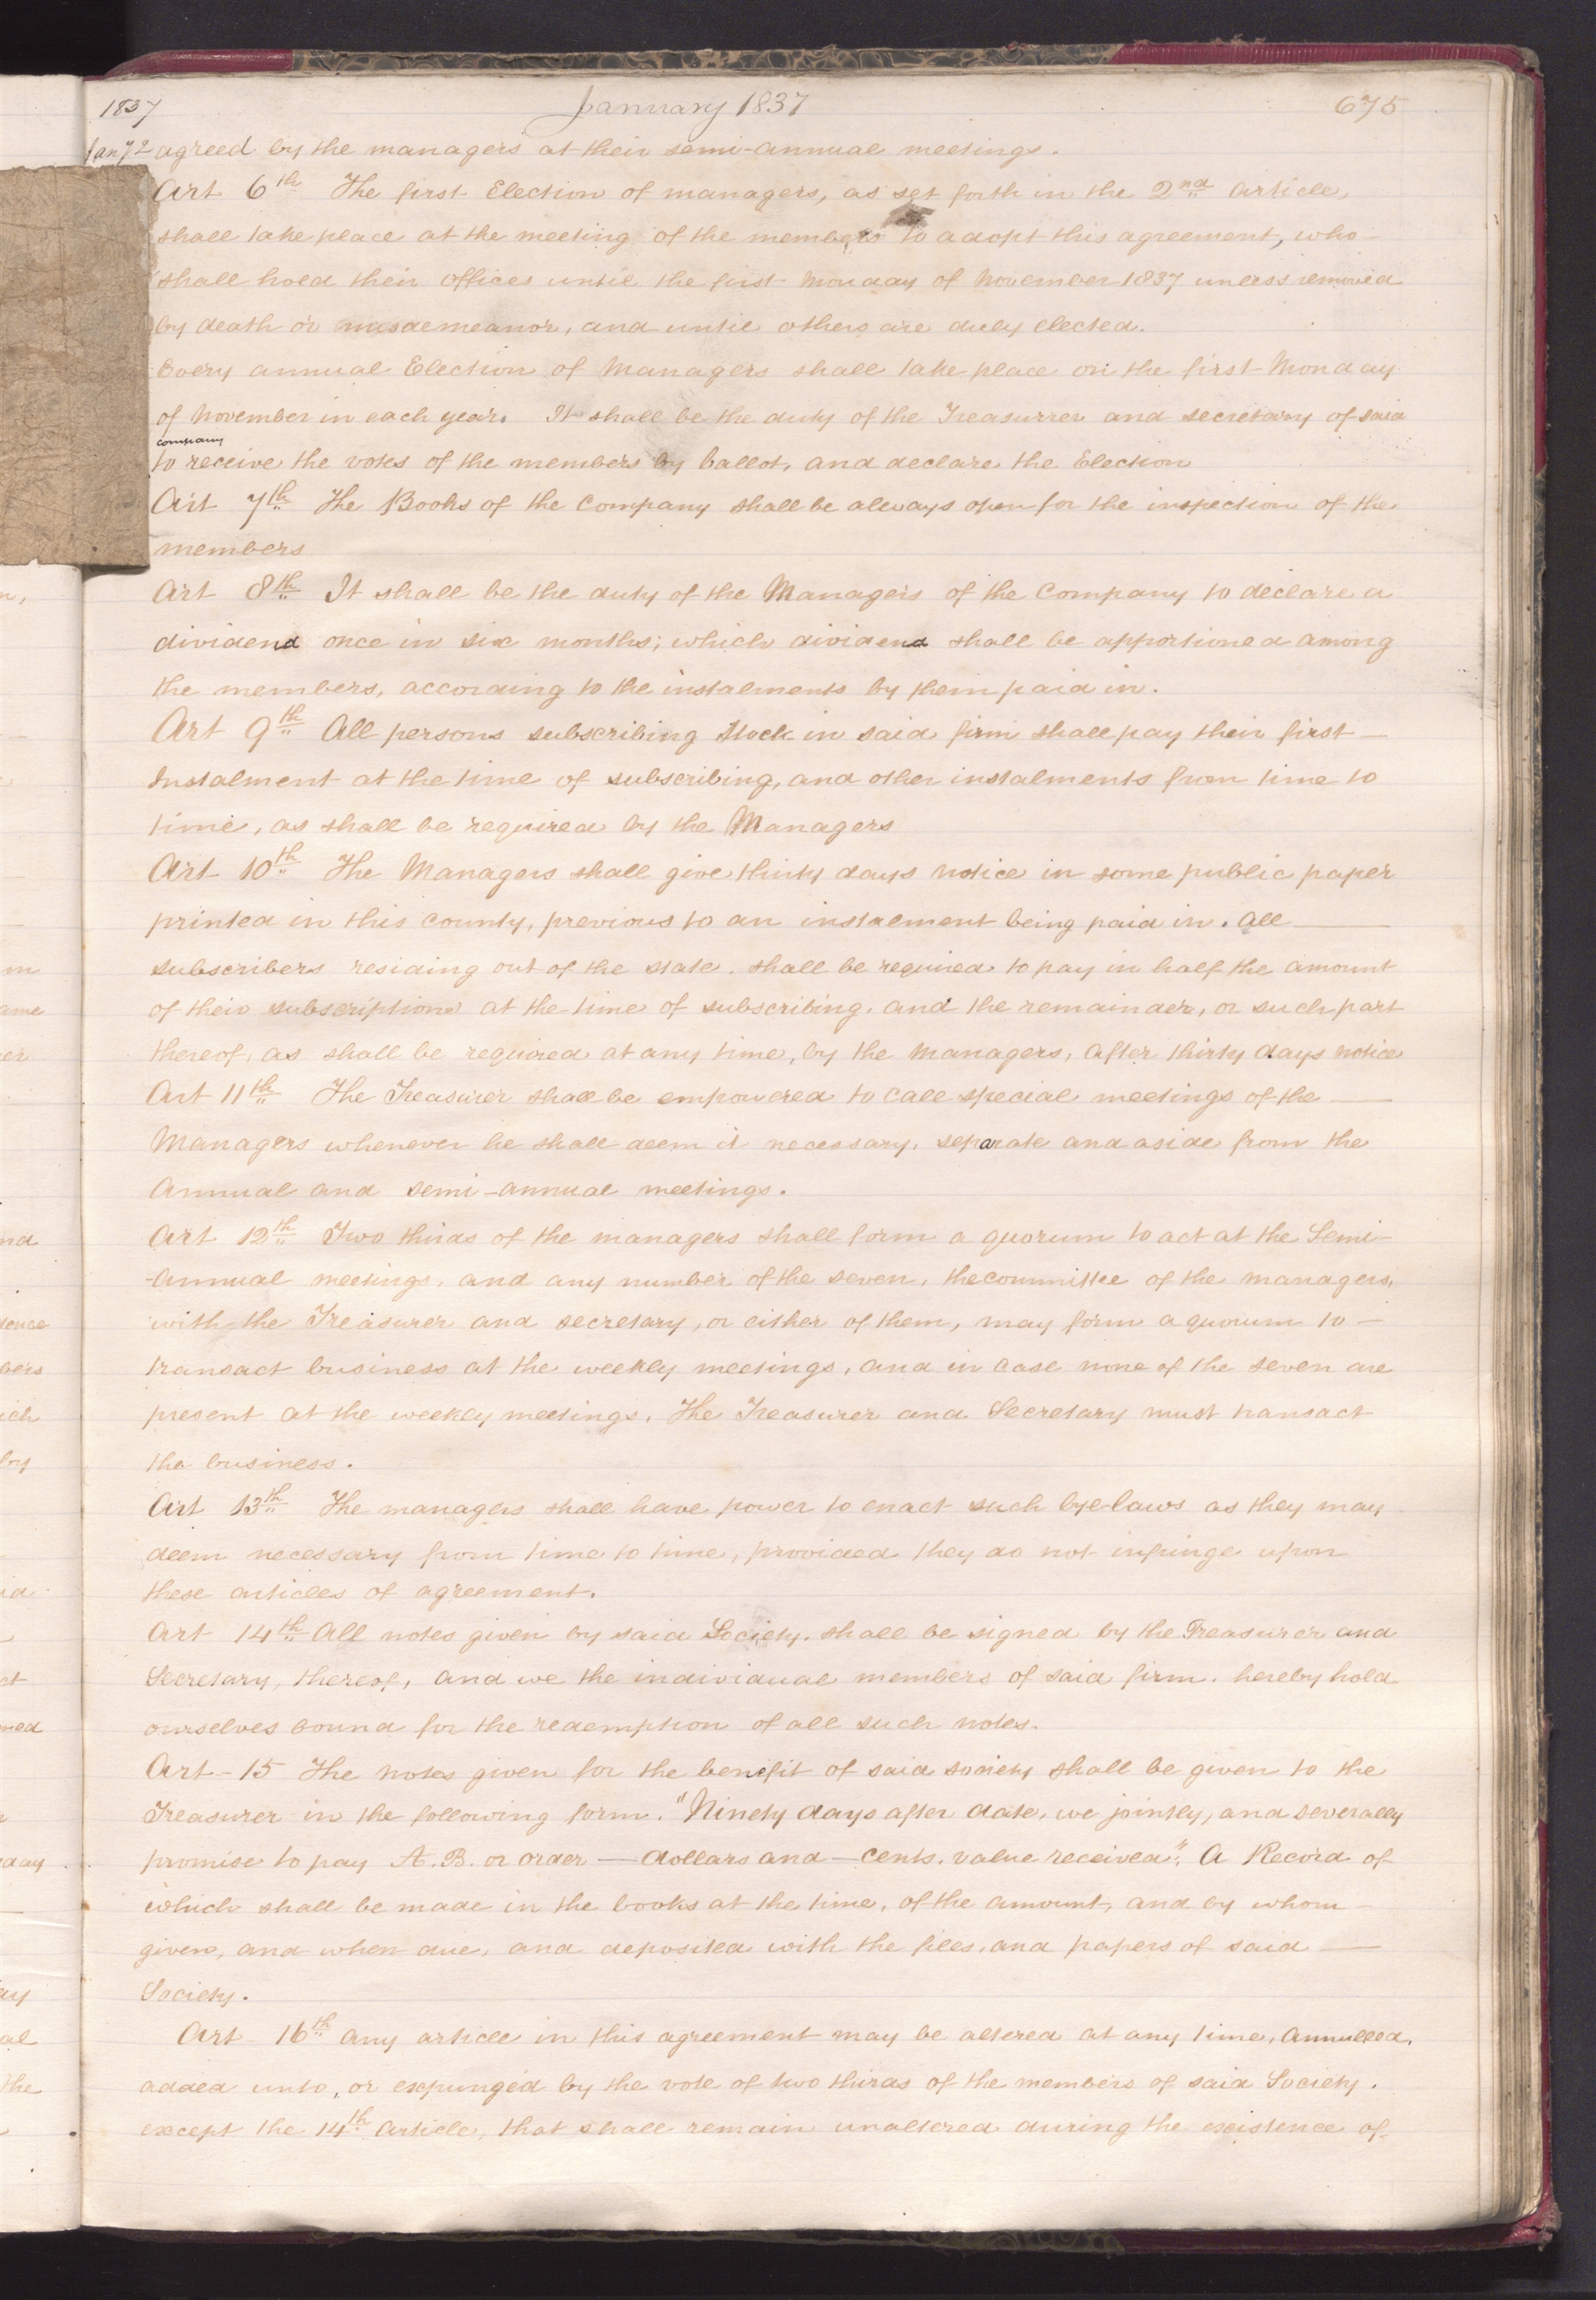 1837 January 1837 675
Jany 2 agreed by the managers at their semi-annual meetings.
Art 6th The first Election of managers, as set forth in the 2nd article,
shall take place at the meeting of the members to adopt this agreement, who
shall hold their offices until the first Monday of November 1837 unless removed
by death or misdemeanor, and until others are duly elected.
Every annual Election of Managers shall take place on the first Monday
of November in each year. It shall be the duty of the Treasurrer and secretary of said
company
to receive the votes of the members by ballot, and declare the Election
Art 7th The Books of the Company shall be always open for the inspection of the
members
Art 8th It shall be the duty of the Managers of the Company to declare a
dividend once in six months; which dividend shall be apportioned among
the members, according to the instalments by them paid in.
Art 9th All persons subscribing Stock in said firm shall pay their first —
Instalment at the time of subscribing, and other instalments from time to
time, as shall be required by the Managers
Art 10th The Managers shall give thirty days notice in some public paper
printed in this county, previous to an instalment being paid in. All —
subscribers residing out of the state. shall be required to pay in half the amount
of their subscriptions at the time of subscribing. and the remainder, or such part
thereof, as shall be required at any time, by the Managers, after thirty days notice
Art 11th The Treasurer shall be empowered to call special meetings of the —
Managers whenever he shall deem it necessary, separate and aside from the
Annual and semi-annual meetings.
Art 12th Two thirds of the managers shall form a quorum to act at the Semi-
-annual meetings, and any number of the seven, the committee of the managers,
with the Treasurer and secretary, or either of them, may form a quorum to —
transact business at the weekly meetings, and in case none of the seven are
present at the weekly meetings, The Treasurer and Secretary must transact
the business.
Art 13th The managers shall have power to enact such bye-laws as they may
deem necessary from time to time, provided they do not infringe upon
these articles of agreement.
Art 14th All notes given by said Society, shall be signed by the Treasurer and
Secretary, thereof, and we the individual members of said firm. hereby hold
ourselves bound for the redemption of all such notes.
Art - 15 The notes given for the benefit of said society shall be given to the
Treasurer in the following form. "Ninety days after date, we jointly, and severally
promise to pay A. B. or order — dollars and — cents. value received". A Record of
which shall be made in the books at the time, of the amount, and by whom
given, and when due, and deposited with the files, and papers of said —
Society.
Art - 16th any article in this agreement may be altered at any time, annulled,
added unto, or expunged by the vote of two thirds of the members of said Society.
except the 14th Article, that shall remain unaltered during the existence of